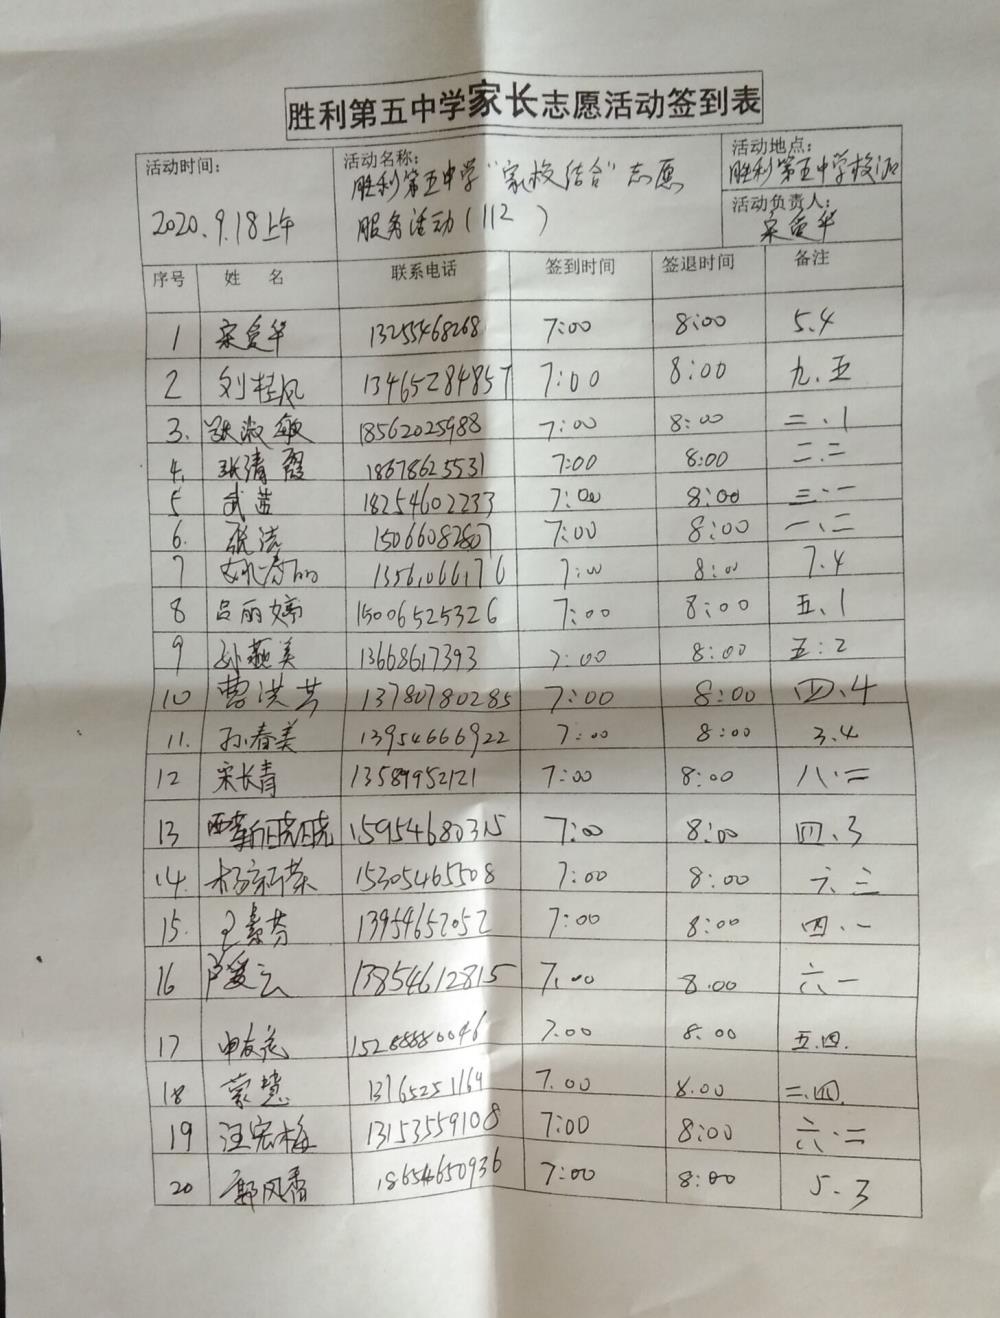 胜利第五中学家长志愿活动签到表
活动时间：
2020.9.18上午
活动名称：
胜利第五中学“家校结合”志愿
服务活动（112 ）
活动地点：
胜利第五中学校门
活动负责人：
宋爱华
序号 姓 名 联系电话 签到时间 签退时间 备注
1 宋爱华 13255468268 7:00 8:00 5.4
2 刘桂凤 13465284857 7:00 8:00 九.五
3. 张淑敏 18562025988 7:00 8:00 三.1
4. 张清霞 18678625531 7:00 8:00 二.三
5 武茁 18254602233 7:00 8:00 三.一
6. 张洁 15066082807 7:00 8:00 一.二
7 13561066176 7:00 8:00 7.4
8 吕丽婷 15006525326 7:00 8:00 五.1
9 孙燕美 13668617393 7:00 8:00 五:2
10 曹洪芹 13780780285 7:00 8:00 四.4
11. 孙春美 13954666922 7:00 8:00 3.4
12 宋长青 13589952121 7:00 8:00 八.二
13 晓晓 15954680315 7:00 8:00 四.3
14. 15305465508 7:00 8:00 六.三
15. 王素芬 13954652052 7:00 8:00 四.一
16 芦爱云 13854612815 7:00 8.00 六一
17 申友花 15288880046 7.00 8.00 五.四.
18 蒙慧 13765251164 7.00 8.00 二.四.
19 汪宏梅 13153559108 7:00 8:00 六.二
20 郭风香 18654650936 7:00 8:00 5.3